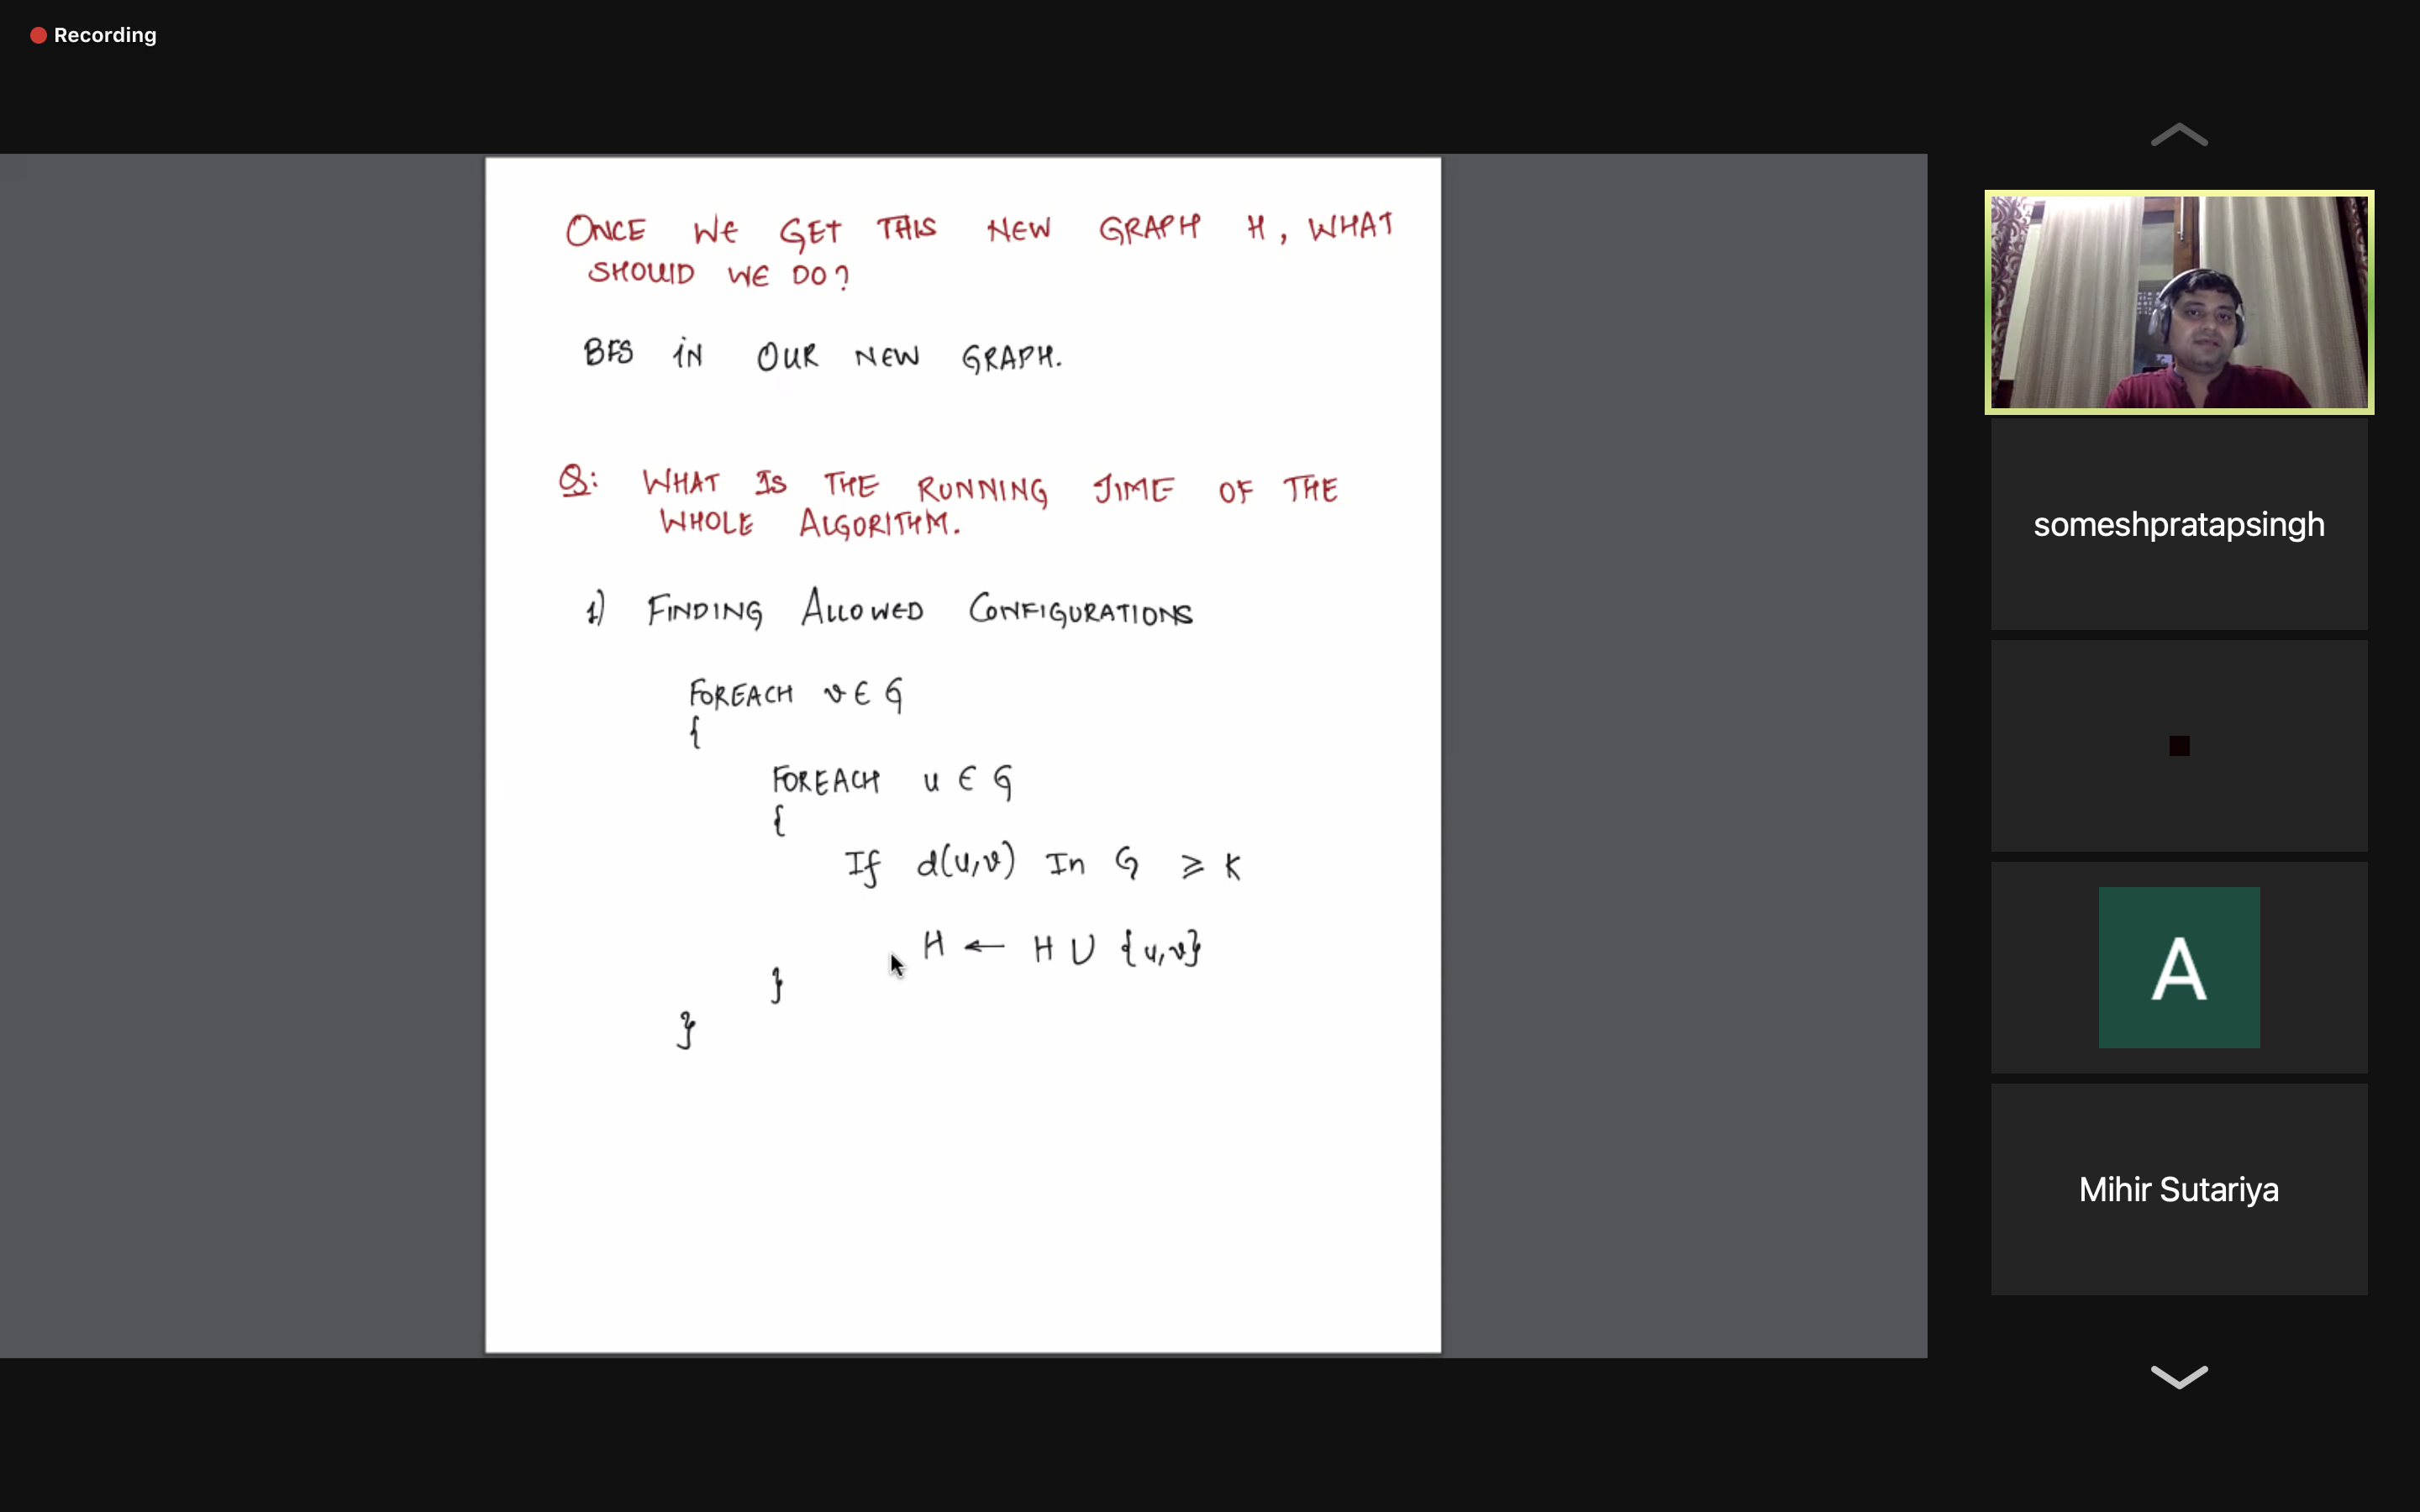 Recording
ONCE WE GET THIS NEW GRAPH H, WHAT
SHOULD WE DO?
BFS IN OUR NEW GRAPH.
Q: WHAT IS THE RUNNING TIME OF THE
WHOLE ALGORITHM.
1) FINDING ALLOWED CONFIGURATIONS
FOREACH v ∈ G
{
FOREACH u ∈ G
{
If d(u,v) In G ≥ K
H ← H ∪ {u,v}
}
}
someshpratapsingh
A
Mihir Sutariya